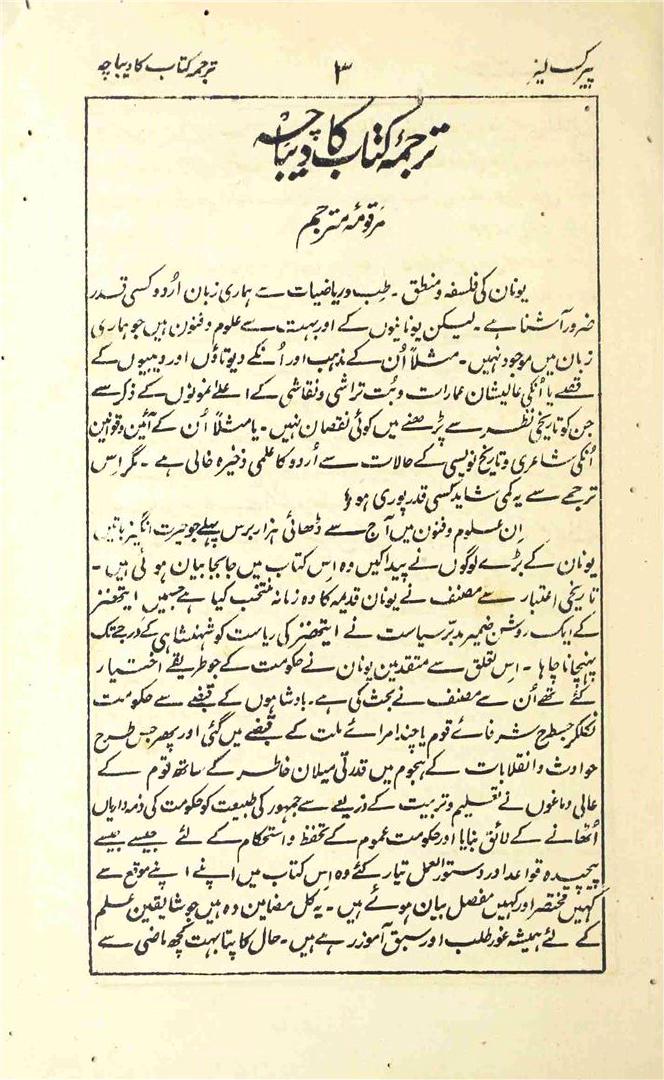 پیرک لیز ۳ ترجمہ کتاب کا دیباچہ
ترجمۂ کتاب کا دیباچہ
مرقومۂ مترجم
یونان کی فلسفہ و منطق ۔ طب و ریاضیات سے ہماری زبان اُردو کسی قدر
ضرور آشنا ہے ۔ لیکن یونانیوں کے اور بہت سے علوم و فنون ہیں جو ہماری
زبان میں موجود نہیں ۔ مثلاً اُن کے مذہب اور اُنکے دیوتاؤں اور دیبیوں کے
قصے یا اُنکی عالیشان عمارات و بُت تراشی و نقاشی کے اعلےٰ نمونوں کے ذکر سے
جن کو تاریخی نظر سے پڑھنے میں کوئی نقصان نہیں ۔ یا مثلاً اُن کے آئین و قوانین
اُنکی شاعری و تاریخ نویسی کے حالات سے اُردو کا علمی ذخیرہ خالی ہے ۔ مگر اِس
ترجمے سے یہ کمی شاید کسی قدر پوری ہو ؛
اِن علوم و فنون میں آج سے ڈھائی ہزار برس پہلے جو حیرت انگیز باتیں
یونان کے بڑے لوگوں نے پیدا کیں وہ اِس کتاب میں جا بجا بیان ہوئی ہیں ۔
تاریخی اعتبار سے مصنف نے یونان قدیمہ کا وہ زمانہ منتخب کیا ہے جسمیں ایتھنز
کے ایک روشن ضمیر مدبّر سیاست نے ایتھنز کی ریاست کو شہنشاہی کے درجے تک
پہنچانا چاہا ۔ اس تعلق سے متقدمین یونان نے حکومت کے جو طریقے اختیار
کئے تھے اُن سے مصنف نے بحث کی ہے ۔ بادشاہوں کے قبضے سے حکومت
نکلکر جسطرح شرفائے قوم یا چند اِمرائے ملت کے قبضے میں گئی اور پھر جس طرح
حوادث و انقلابات کے ہجوم میں قدرتی میلان خاطر کے ساتھ قوم کے
عالی دماغوں نے تعلیم و تربیت کے ذریعے سے جمہور کی طبیعت کو حکومت کی ذمہ داریاں
اُٹھانے کے لائق بنایا اور حکومت عموم کے تحفظ و استحکام کے لئے جیسے جیسے
پیچیدہ قواعد اور دستورالعمل تیار کئے وہ اِس کتاب میں اپنے اپنے موقع سے
کہیں مختصر اور کہیں مفصل بیان ہوئے ہیں ۔ یہ کل مضامین وہ ہیں جو شایقین علم
کے لئے ہمیشہ غور طلب اور سبق آموز رہے ہیں ۔ حال کا پتا بہت کچھ ماضی سے